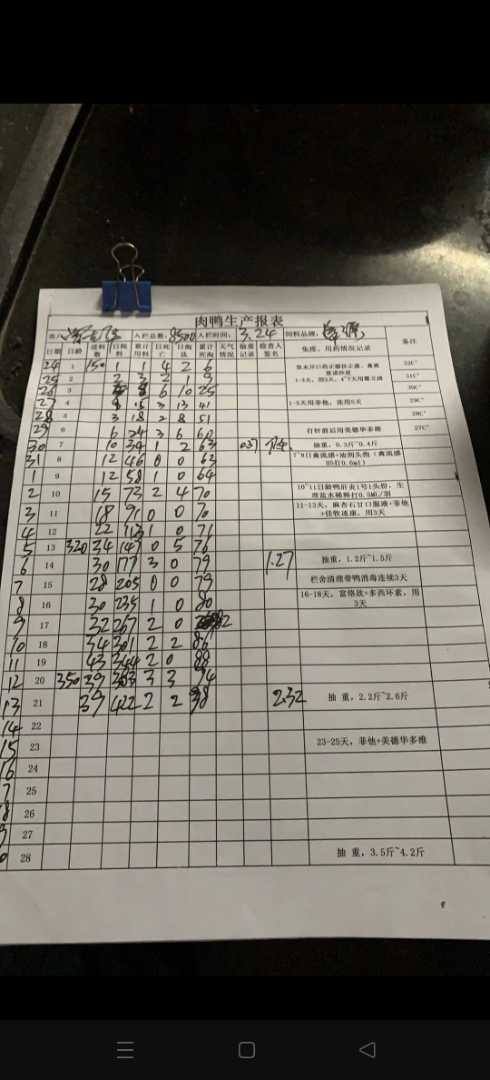 肉鸭生产报表
入栏总数: 8500 入栏时间: 3.24 饲料品牌:
日期 日龄 进料数 日耗料 累计用料 日死亡 日淘汰 累计死淘 天气情况 抽重记录 检查人签名 免疫、用药情况记录 备注
24 1 150 1 1 4 2 6 33C°
25 2 2 3 2 1 9 31C°
26 3 6 10 25 30C°
27 4 3 13 41 1-5天用菲他，连用5天 29C°
28 5 3 18 2 8 51 28C°
29 6 6 24 3 6 60 打针前后用美德华多维 27C°
30 7 10 34 1 2 63 抽重，0.3斤~0.4斤
31 8 12 46 0 0 63
1 9 12 58 1 0 64
2 10 15 73 2 4 70
3 11 18 91 0 0 70 11-13天，麻杏石甘口服液+菲他+佳牧速康，用3天
4 12 22 113 1 0 71
5 13 320 34 147 0 5 76
6 14 30 177 3 0 79 1.27 抽重，1.2斤~1.5斤
7 15 28 205 0 0 79 栏舍清理带鸭消毒连续3天
8 16 30 235 1 0 80 16-18天，富倍放+多西环素，用3天
9 17 32 267 2 0 82
10 18 34 301 2 2 86
11 19 43 344 2 0 88
12 20 350 39 383 3 3 94
13 21 39 422 2 2 98 2.32 抽 重，2.2斤~2.6斤
14 22
15 23 23-25天，菲他+美德华多维
16 24
7 25
8 26
27
28 抽 重，3.5斤~4.2斤